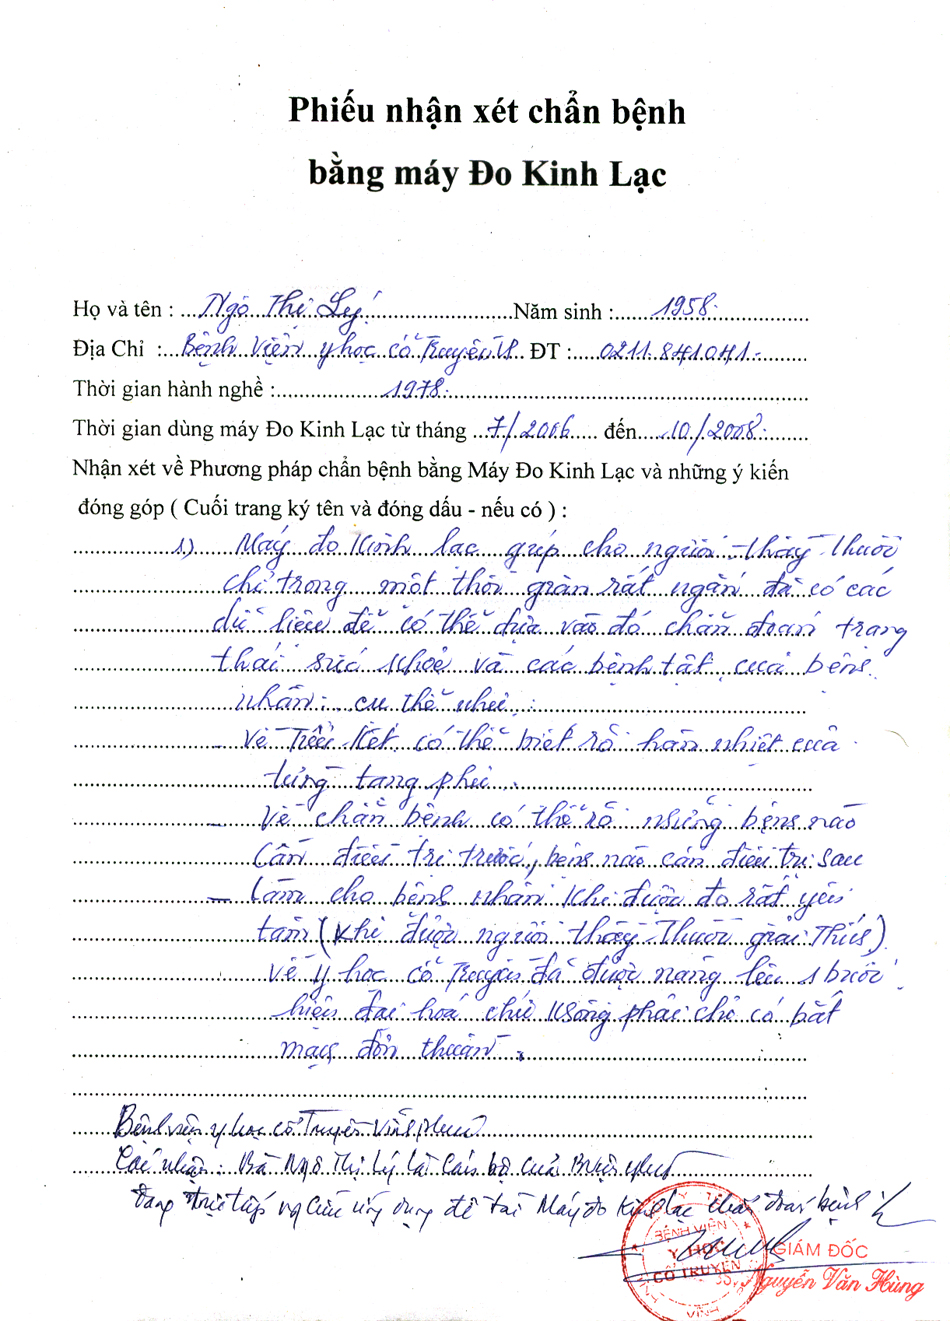 Phiếu nhận xét chẩn bệnh
bằng máy Đo Kinh Lạc
Họ và tên : Ngô Thị Lý Năm sinh : 1958
Địa Chỉ : Bệnh viện y học cổ Truyền ĐT : 0211.841041
Thời gian hành nghề : 1978
Thời gian dùng máy Đo Kinh Lạc từ tháng 7/2006 đến 10/2008
Nhận xét về Phương pháp chẩn bệnh bằng Máy Đo Kinh Lạc và những ý kiến
đóng góp ( Cuối trang ký tên và đóng dấu - nếu có ) :
1) Máy đo Kinh lạc giúp cho người thầy thuốc
chỉ trong một thời gian rất ngắn đã có các
dữ liệu để có thể dựa vào đó chẩn đoán trạng
thái sức khoẻ và các bệnh tật của bệnh
nhân: cụ thể như:
- Về có thể biết rõ hàn nhiệt của
từng tạng phủ.
- Về chẩn bệnh có thể rõ những bệnh nào
cần điều trị trước, bệnh nào cần điều trị sau
- Làm cho bệnh nhân khi được đo rất yên
tâm (khi được người thầy thuốc giải thích)
về y học cổ Truyền đã được nâng lên 1 bước
hiện đại hoá chứ không phải chỉ có bắt
mạch đơn thuần.
Bệnh viện y học cổ Truyền Vĩnh phúc
Xác nhận: Bà Ngô Thị Lý là Cán bộ của
đang trực tiếp ứng dụng đề tài Máy đo Kinh lạc chẩn đoán bệnh
BỆNH VIỆN
Y HỌC
CỔ TRUYỀN
GIÁM ĐỐC
Nguyễn Văn Hùng